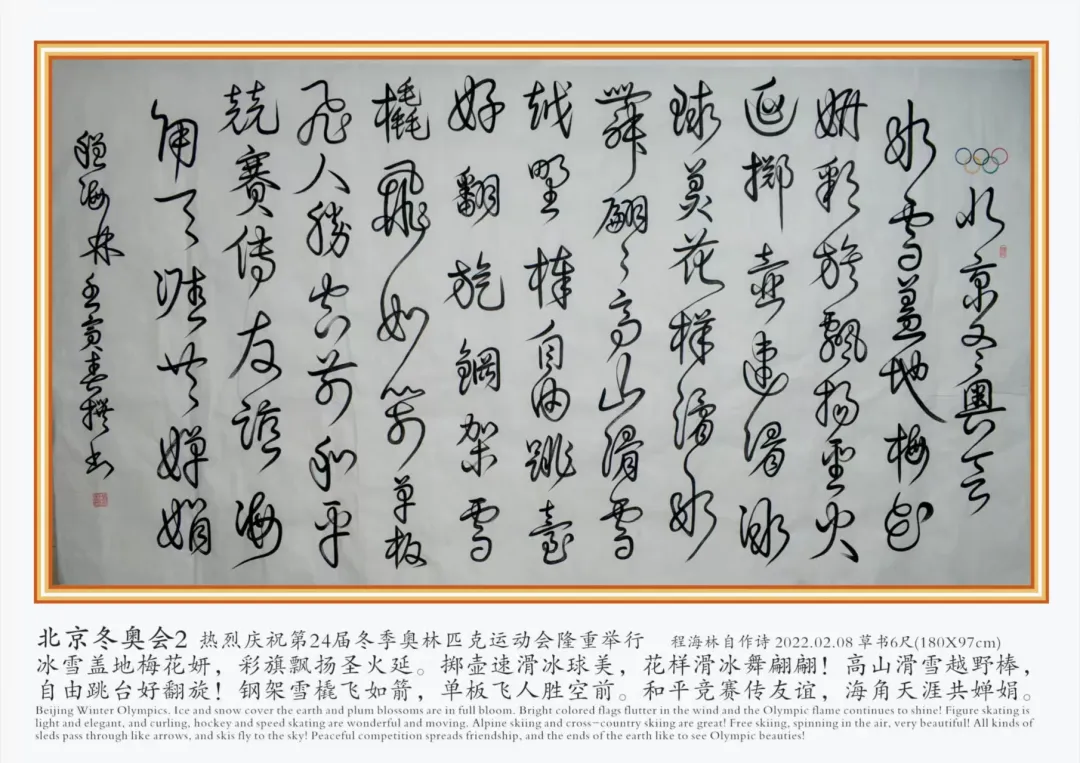 北京冬奧会
冰雪蓋地梅花
妍彩旗飄揚聖火
延擲壺速滑冰
球美花樣滑冰
舞翩〻高山滑雪
越野棒自由跳臺
好翻旋鋼架雪
橇飛如箭单板
飛人勝空前和平
競賽傳友誼海
角天涯共嬋娟
程海林壬寅春撰书
北京冬奥会2 热烈庆祝第24届冬季奥林匹克运动会隆重举行 程海林自作诗 2022.02.08 草书6尺(180X97cm)
冰雪盖地梅花妍，彩旗飘扬圣火延。掷壶速滑冰球美，花样滑冰舞翩翩！高山滑雪越野棒，
自由跳台好翻旋！钢架雪橇飞如箭，单板飞人胜空前。和平竞赛传友谊，海角天涯共婵娟。
Beijing Winter Olympics. Ice and snow cover the earth and plum blossoms are in full bloom. Bright colored flags flutter in the wind and the Olympic flame continues to shine! Figure skating is
light and elegant, and curling, hockey and speed skating are wonderful and moving. Alpine skiing and cross-country skiing are great! Free skiing, spinning in the air, very beautiful! All kinds of
sleds pass through like arrows, and skis fly to the sky! Peaceful competition spreads friendship, and the ends of the earth like to see Olympic beauties!